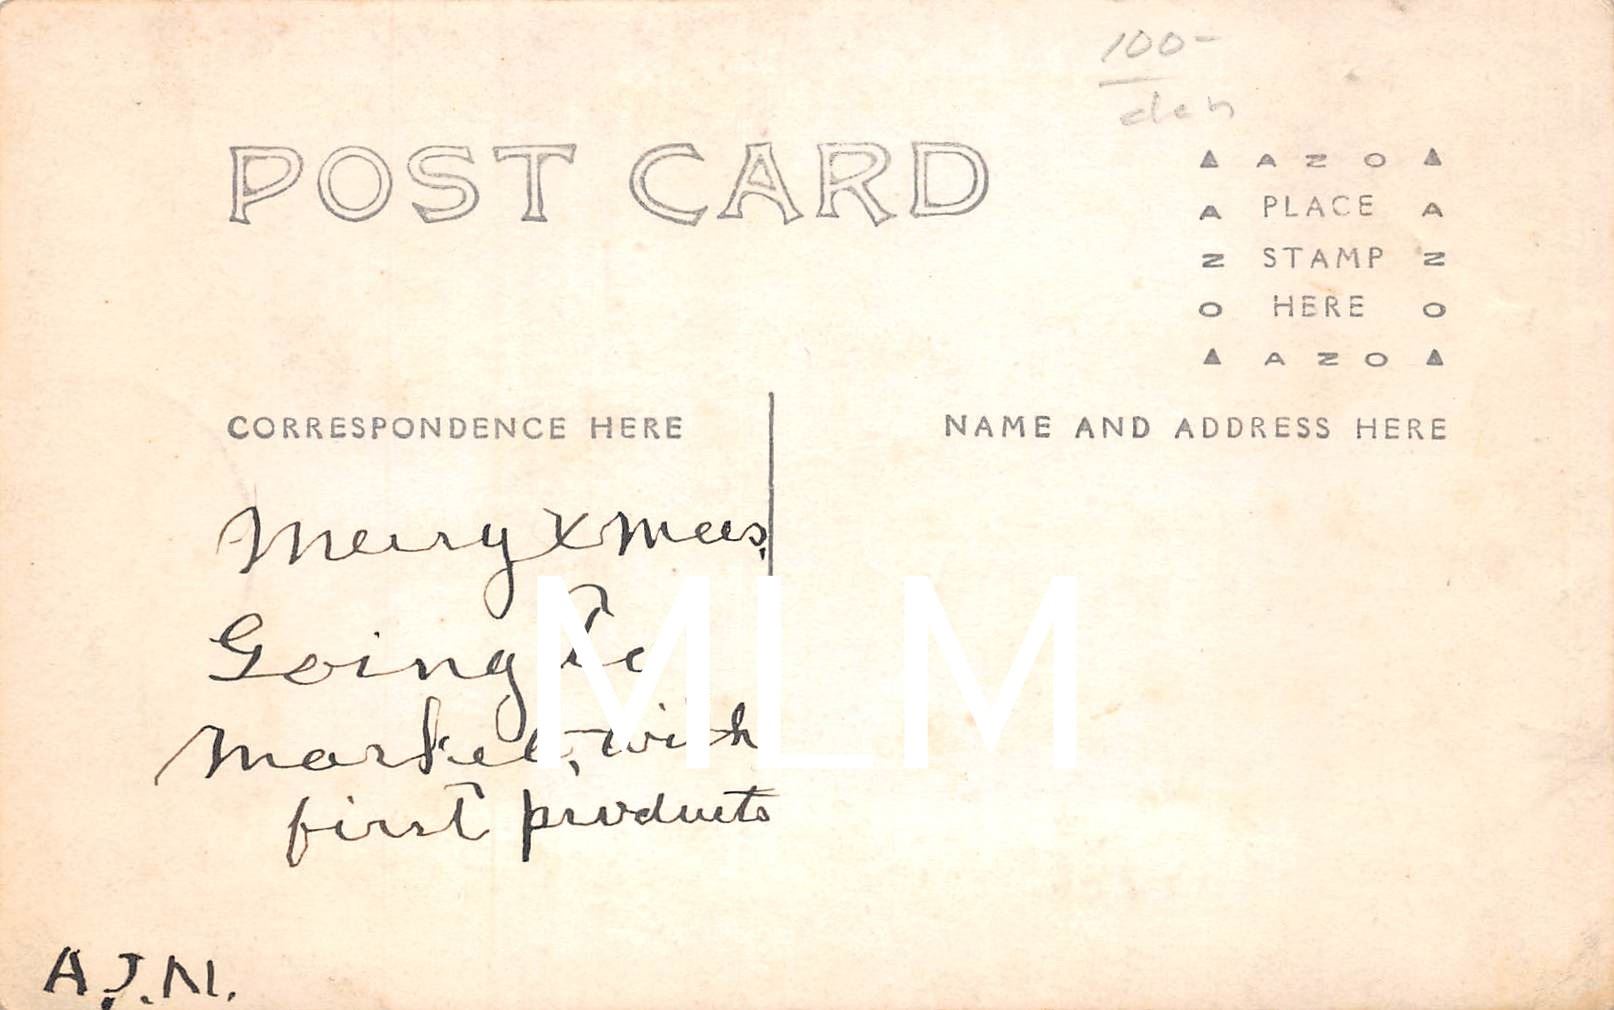 100-
POST CARD
▲ A Z O ▲
A PLACE A
Z STAMP Z
O HERE O
▲ A Z O ▲
CORRESPONDENCE HERE
NAME AND ADDRESS HERE
Merry Xmas,
Going To
Market, with
first products
MLM
A.J.N.